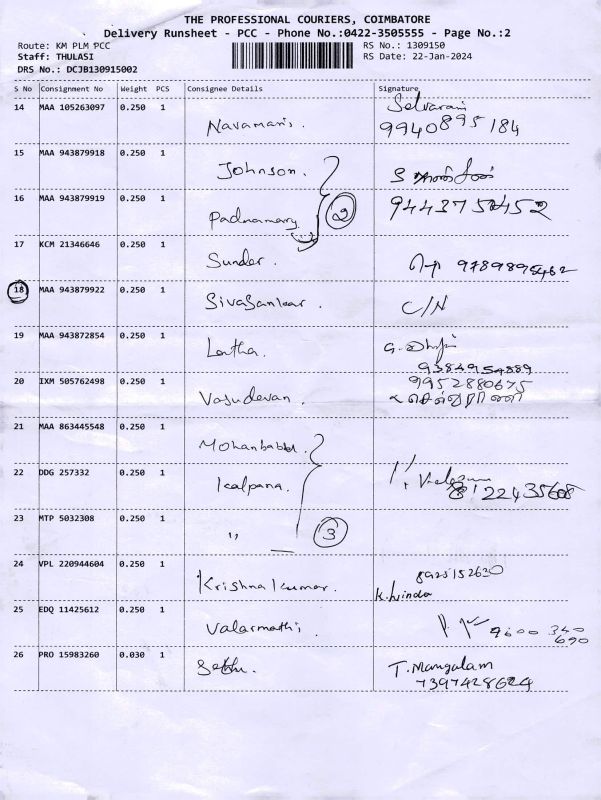 THE PROFESSIONAL COURIERS, COIMBATORE
Delivery Runsheet - PCC - Phone No.:0422-3505555 - Page No.:2
Route: KM PLM PCC
RS No.: 1309150
Staff: THULASI
RS Date: 22-Jan-2024
DRS No.: DCJB130915002
S No Consignment No Weight PCS Consignee Details Signature
14 MAA 105263097 0.250 1 Navamani. Selvarani
9940895184
15 MAA 943879918 0.250 1 Johnson.
16 MAA 943879919 0.250 1 Padmamary 2 9443750452
17 KCM 21346646 0.250 1 Sunder. 9789895462
18 MAA 943879922 0.250 1 SivaSankar. C/N
19 MAA 943872854 0.250 1 Latha.
9384954889
20 IXM 505762498 0.250 1 Vasudevan. 9952880675
21 MAA 863445548 0.250 1 Mohanbabu.
22 DDG 257332 0.250 1 Kalpana. 8122435608
23 MTP 5032308 0.250 1 " 3
24 VPL 220944604 0.250 1 Krishna Kumar. 8925152630
25 EDQ 11425612 0.250 1 Valarmathi. 9600 340
690
26 PRO 15983260 0.030 1 Sethu. T. Mangalam
7397428624